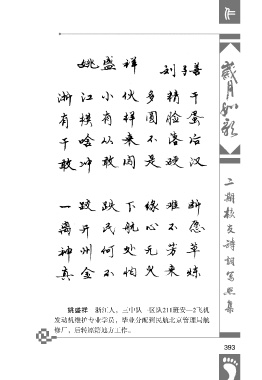 姚盛祥 刘子善
浙江小伙多精干
有模有样圆脸蛋
干啥从来不落后
敢冲敢闯是硬汉
一跤跌下缘难断
离开民航心不愿
神州何处无芳草
真金不怕火来炼
姚盛祥 浙江人，三中队一区队211班安—2飞机
发动机维护专业学员，毕业分配到民航北京管理局航
修厂，后转原籍地方工作。
作
岁月如歌
二期校友诗词写照集
393